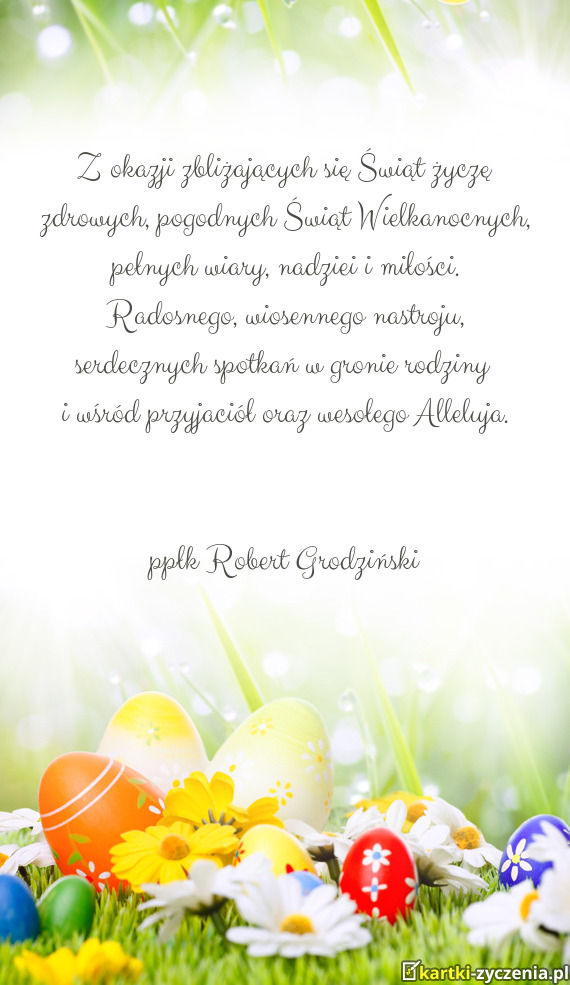 Z okazji zbliżających się Świąt życzę
zdrowych, pogodnych Świąt Wielkanocnych,
pełnych wiary, nadziei i miłości.
Radosnego, wiosennego nastroju,
serdecznych spotkań w gronie rodziny
i wśród przyjaciół oraz wesołego Alleluja.
ppłk Robert Grodziński
kartki-zyczenia.pl